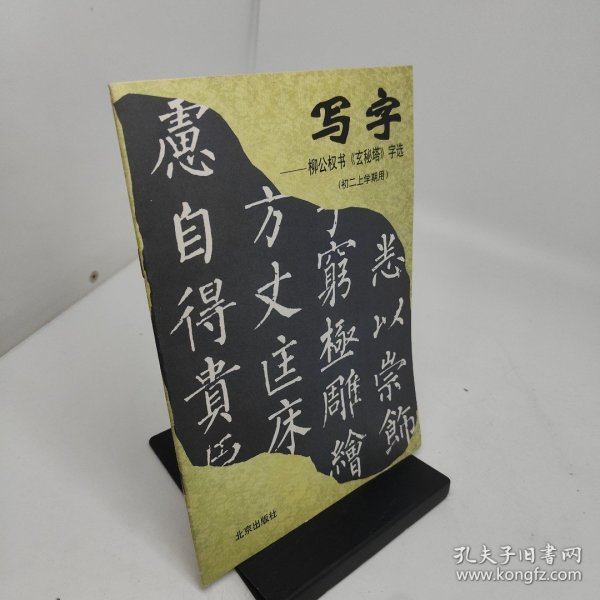 写字
——柳公权书《玄秘塔》字选
(初二上学期用)
悉以崇飾
窮極雕繪
方丈匡床
慮自得貴
北京出版社
孔夫子旧书网
www.kongfz.com